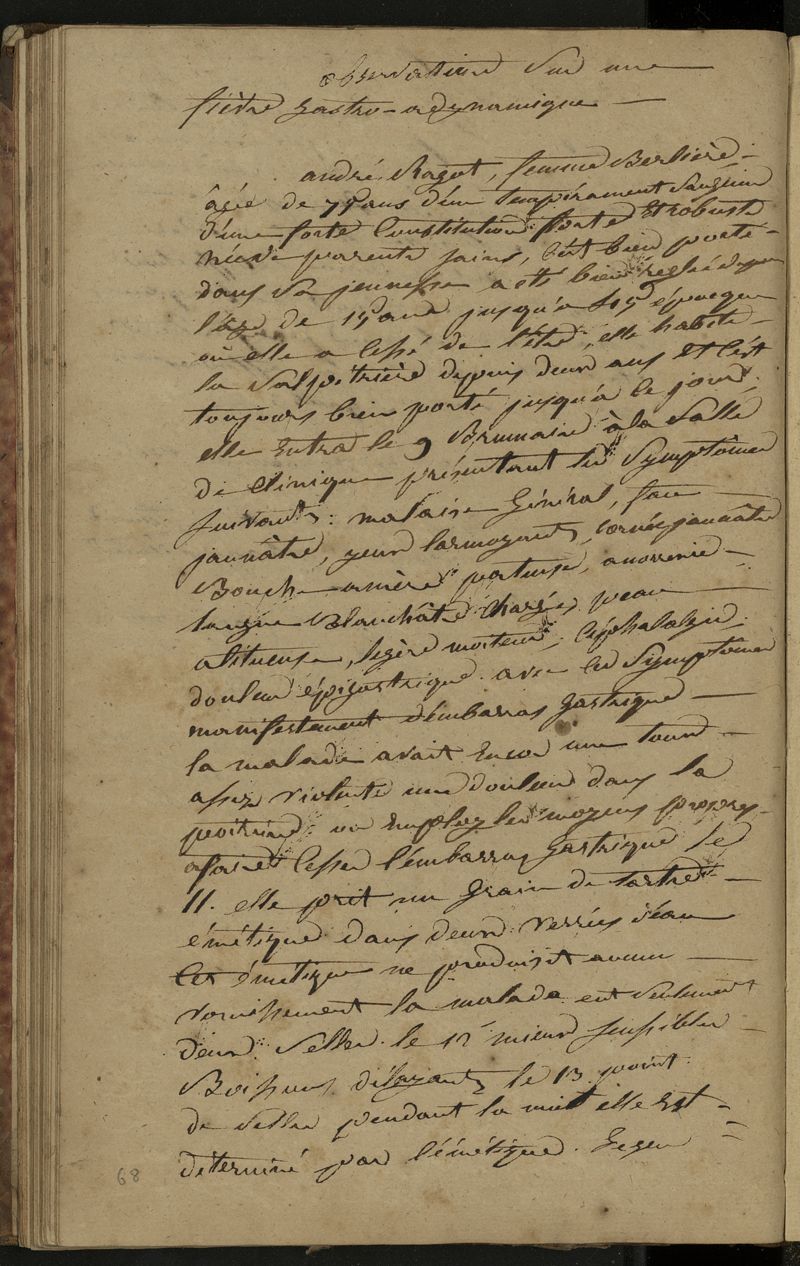 observation Sur une
fièvre gastro-adynamique
andré Ragot, femme Berliere
âgée de 75 ans d'un tempérament Sanguin
d'une forte Constitution forte Et robuste
née de parents sains, s'est bien porté
dans sa jeunesse a été bien reglée depuis
l'age de 15 ans jusqu'a 45 époque
où elle a Cessé de l'être, elle habite
la Salpêtrière depuis deux ans Et s'est
toujours bien porté jusqu'à ce jour,
elle Entra le 9 Brumaire à la Salle
de Clinique présentant les Symptômes
suivants : malaise Général, face
jaunâtre, yeux larmoyants, cornée jaunâtre
Bouche amère pateuse, anorexie
langue Blanchâtre Chargée, peau
alitueuse, légère moiteur, Céphalalgie
douleur épigastrique. avec ces Symptômes
manifestement d'embarras gastrique
la malade avait Encor une toux
assez violente une douleur dans la
poitrine. on Employa les moyens propres
a faire Cesser l'embarras gastrique le
11. elle prit un Grain de tartre
émétique dans deux verrées d'eau
Cet émétique ne produisit aucun
vomissement la malade eut seulement
deux Selles. le 12 mieux sensible
Boissons délayants, le 13 point
de Selles pendant la nuit elle Est
déterminé par l'émétique.
68